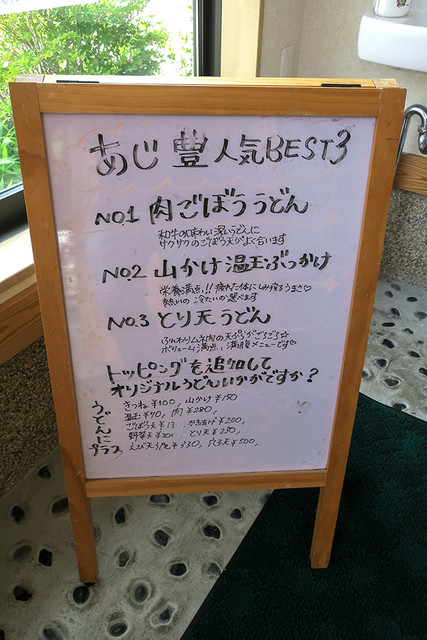 あじ豊人気BEST3
NO.1 肉ごぼううどん
和牛の味わい深いうどんに
サクサクのごぼう天がよく合います
NO.2 山かけ温玉ぶっかけ
栄養満点!! 疲れた体にしみ渡るうまさ♡
熱いの 冷たいの選べます
NO.3 とり天うどん
ふんわりムネ肉の天ぷらがごろごろ☆
ボリューム満点、満腹メニューです♡
トッピングを追加して
オリジナルうどんいかがですか?
うどんにプラス
きつね ¥100, 山かけ ¥150
温玉 ¥70, 肉 ¥280,
ごぼう天 ¥13 かきあげ ¥200,
野菜天 ¥20 とり天 ¥250,
えび天 ¥330, 穴子天 ¥500,